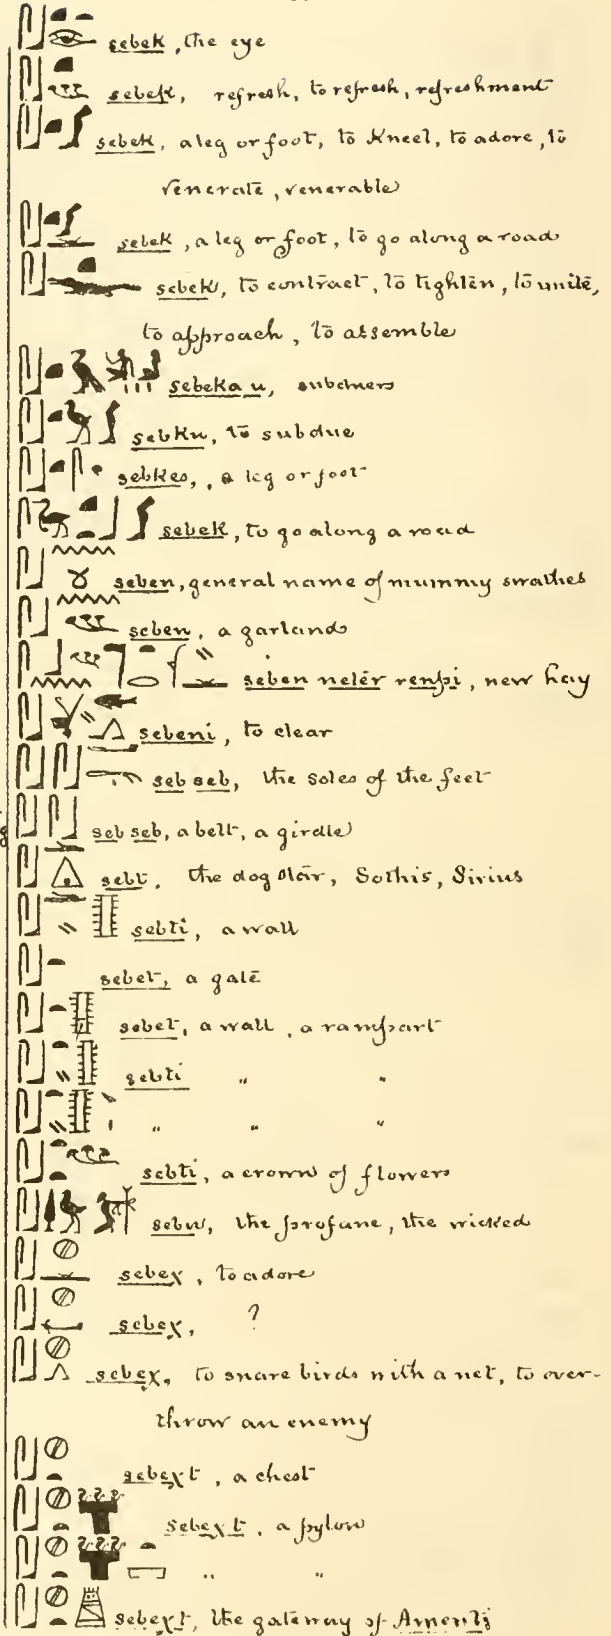 sebek, the eye
sebek, refresh, to refresh, refreshment
sebek, a leg or foot, to kneel, to adore, to
venerate, venerable
sebek, a leg or foot, to go along a road
sebek, to contract, to tighten, to unite,
to approach, to assemble
sebeka u, subduers
sebku, to subdue
sebkes, , a leg or foot
sebek, to go along a road
seben, general name of mummy swathes
seben, a garland
seben neter renpi, new hay
sebeni, to clear
seb seb, the soles of the feet
seb seb, a belt, a girdle
sebt, the dog star, Sothis, Sirius
sebti, a wall
sebet, a gate
sebet, a wall, a rampart
sebti " "
" " "
sebti, a crown of flowers
sebu, the profane, the wicked
sebeχ, to adore
sebeχ, ?
sebeχ, to snare birds with a net, to over-
throw an enemy
sebeχt, a chest
sebeχt, a pylon
" "
sebeχt, the gateway of Amenti